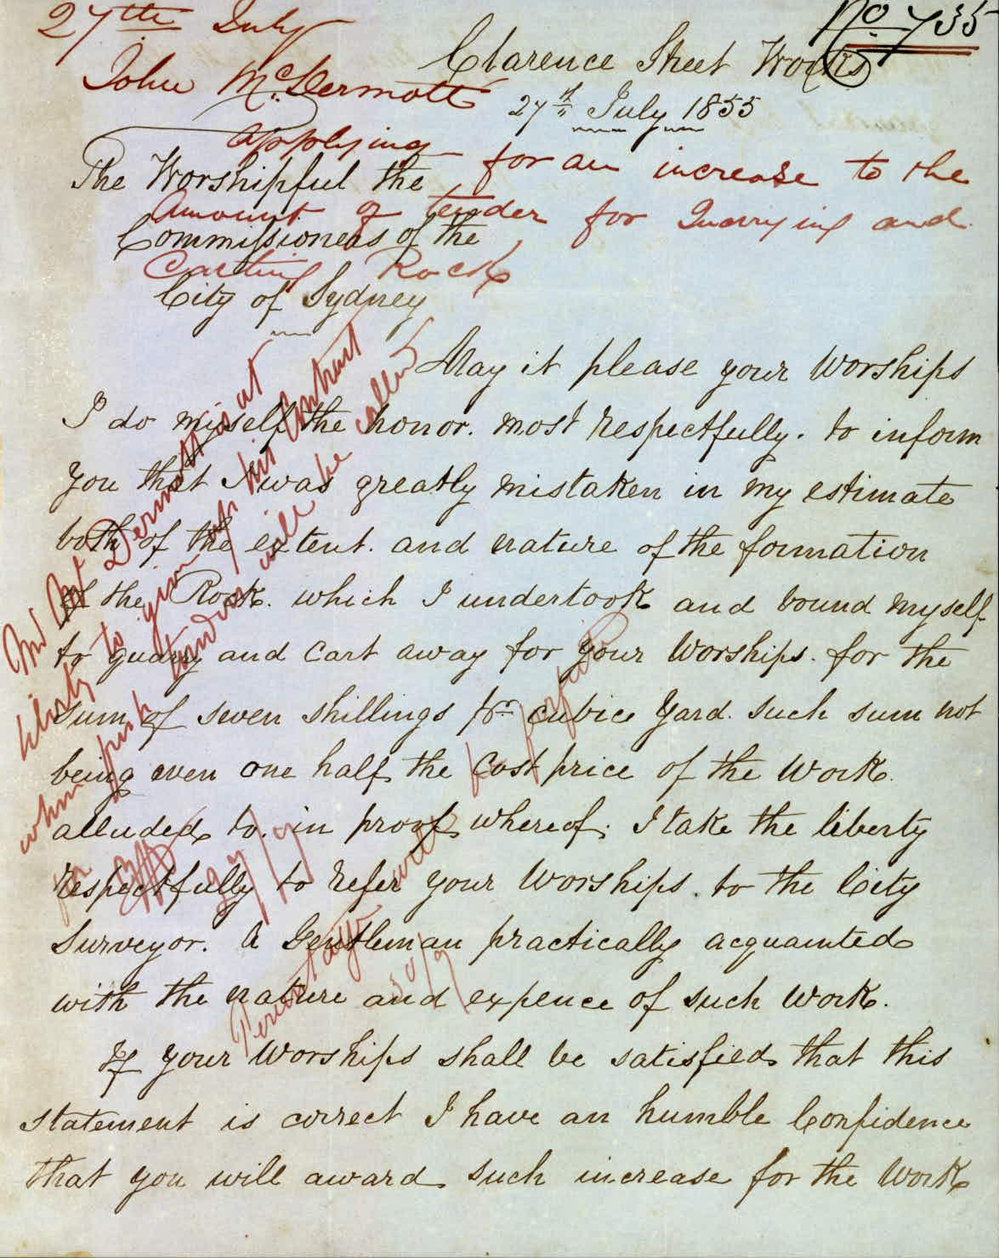 27th July
No 735
John McDermott
Clarence Street Works
27th July 1855
applying for an increase to the
amount of tender for Quarrying and
Carting Rock
The Worshipful the
Commissioners of the
City of Sydney
May it please your Worships
I do myself the honor. most respectfully. to inform
you that I was greatly mistaken in my estimate
both of the extent. and nature of the formation
of the Rock. which I undertook and bound myself
to quarry and cart away for your Worships. for the
sum of seven shillings pr cubice yard. such sum not
being even one half the Cost price of the Work.
alluded to. in proof whereof. I take the liberty
respectfully to refer your Worships. to the City
Surveyor. A Gentleman practically acquainted
with the nature and expence of such Work.
If your Worships shall be satisfied that this
statement is correct I have an humble Confidence
that you will award such increase for the Work
Mr McDermott is at
liberty to give up his Contract
when fresh tenders will be called
for
27/7
Percentage will be forfeited
30/7